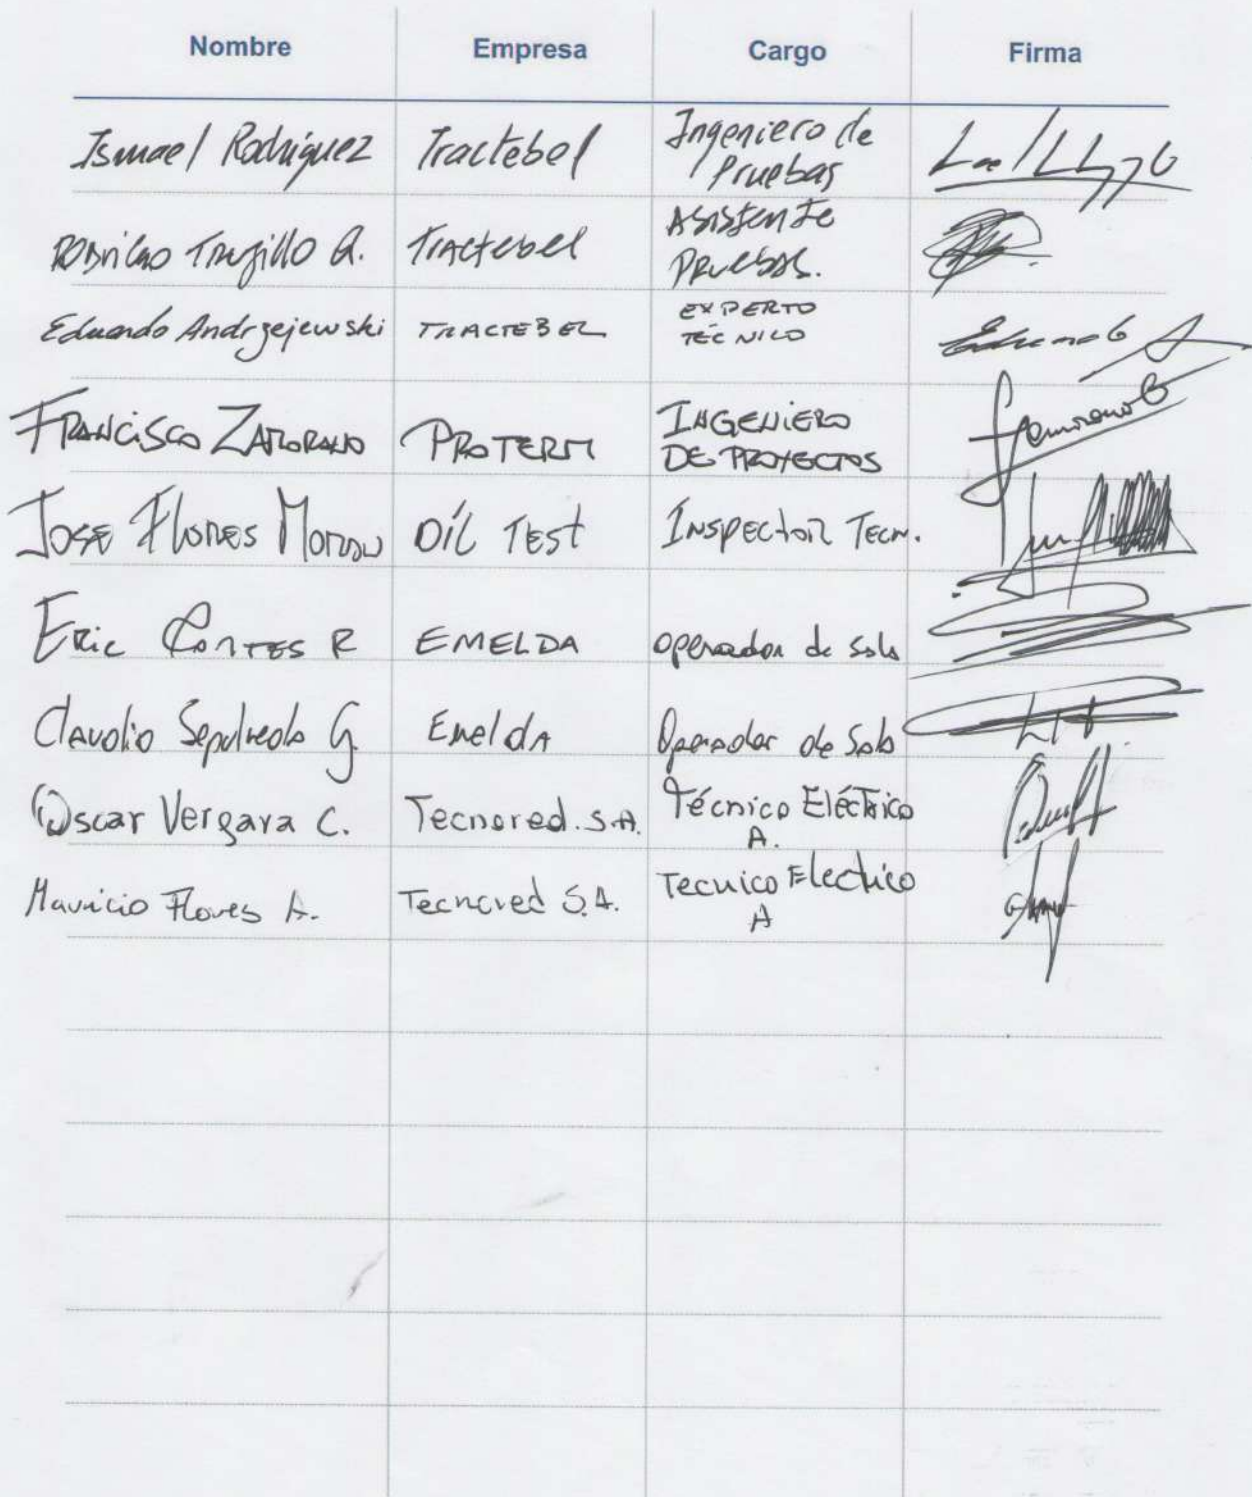 Nombre Empresa Cargo Firma
Ismael Rodriguez Tractebel Ingeniero de
Pruebas
Trujillo Q. Tractebel Asistente
Pruebas.
Eduardo Andrzejewski TRACTEBEL EXPERTO
TÉCNICO
FRANCISCO ZAMORANO PROTERM INGENIERO
DE PROYECTOS
Jose Flores OIL TEST Inspector Tecn.
Eric Cortes R EMELDA operador de Sala
Claudio Sepulveda G. Emelda Operador de Sala
Oscar Vergara C. Tecnored. S.A. Técnico Eléctrico
A.
Mauricio Flores A. Tecnored S.A. Tecnico Electrico
A